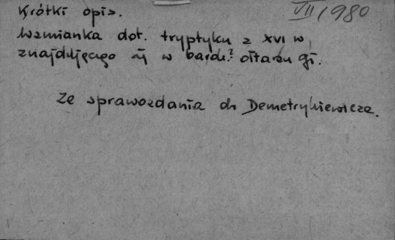 Krótki opis. VII/1980
Wzmianka dot. tryptyku z XVI w.
znajdującego się w bardz.? ołtarzu gł.
Ze sprawozdania dr Demetrykiewicza.